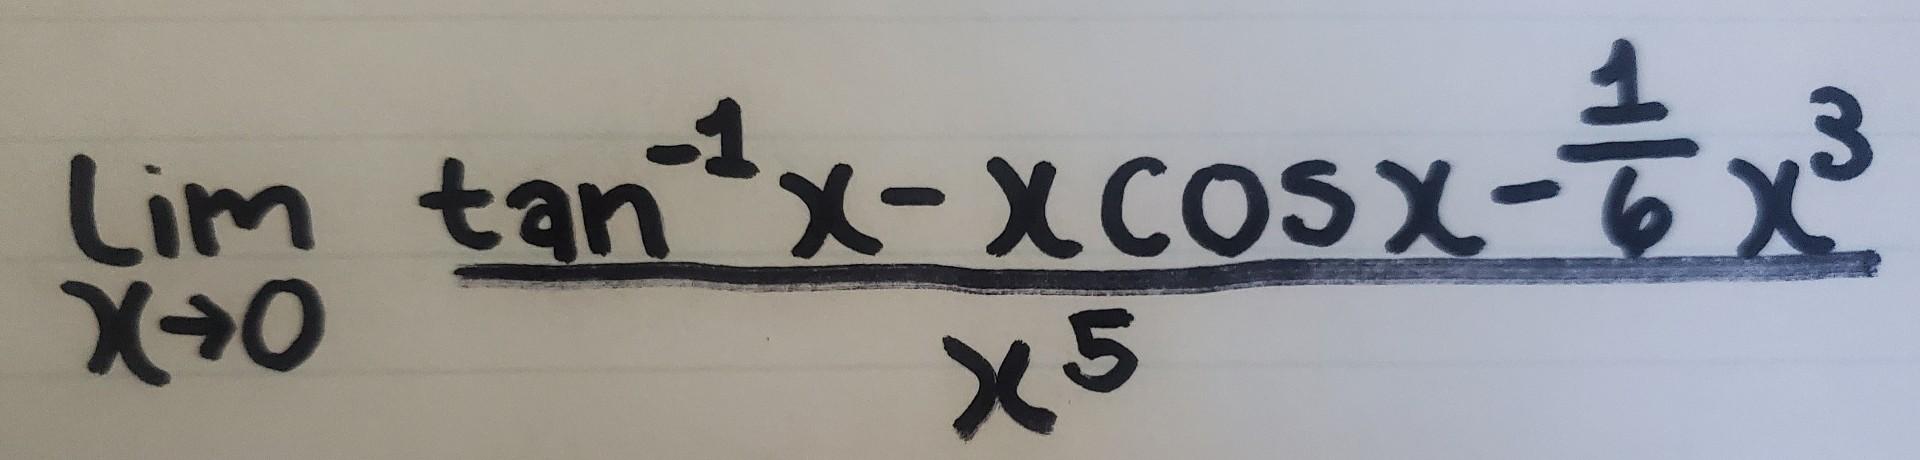 lim x→0 (tan⁻¹x - xcosx - 1/6 x³) / x⁵